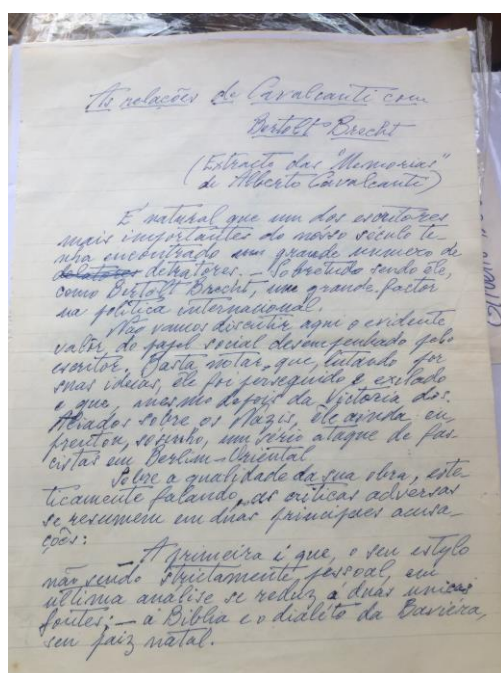 As relações de Cavalcanti com
Bertolt Brecht
(Extracto das "Memorias"
de Alberto Cavalcanti)
É natural que um dos escritores
mais importantes do nosso século te-
nha encontrado um grande numero de
delatores detratores. — Sobretudo sendo ele,
como Bertolt Brecht, um grande factor
na política internacional.
Não vamos discutir aqui o evidente
valor do papel social desempenhado pelo
escritor. Basta notar, que, lutando por
suas ideias, ele foi perseguido e exilado
e que, mesmo depois da victoria dos
Aliados sobre os Nazis, ele ainda en
frentou, sosinho, um sério ataque de fas-
cistas em Berlim-Oriental
Sobre a qualidade da sua obra, este-
ticamente falando, as criticas adversas
se resumem em duas principaes acusa-
ções:
— A primeira é que, o seu estylo
não sendo strictamente pessoal, em
ultima analise se reduz a duas unicas
fontes: — a Biblia e o dialéto da Baviéra,
seu paiz natal.